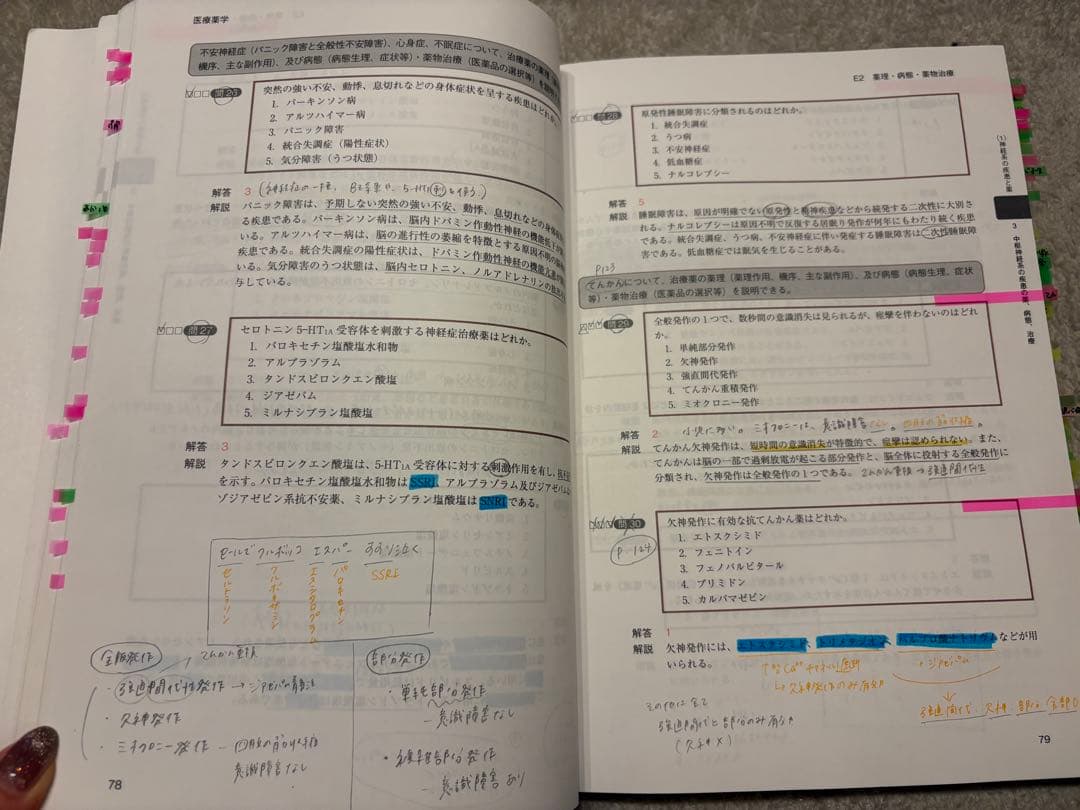 医療薬学
不安神経症（パニック障害と全般性不安障害）、心身症、不眠症について、治療薬の薬理
機序、主な副作用）、及び病態（病態生理、症状等）・薬物治療（医薬品の選択等）を説明で
問26
突然の強い不安、動悸、息切れなどの身体症状を呈する疾患はどれか。
1. パーキンソン病
2. アルツハイマー病
3. パニック障害
4. 統合失調症（陽性症状）
5. 気分障害（うつ状態）
解答 3
解説 パニック障害は、予期しない突然の強い不安、動悸、息切れなどの身体
る疾患である。パーキンソン病は、脳内ドパミン作動性神経の機能低下が
いる。アルツハイマー病は、脳の進行性の萎縮を特徴とする原因不明の
疾患である。統合失調症の陽性症状は、ドパミン作動性神経の機能
いる。気分障害のうつ状態は、脳内セロトニン、ノルアドレナリンの
与している。
問27
セロトニン5-HT1A 受容体を刺激する神経症治療薬はどれか。
1. パロキセチン塩酸塩水和物
2. アルプラゾラム
3. タンドスピロンクエン酸塩
4. ジアゼパム
5. ミルナシプラン塩酸塩
解答 3
解説 タンドスピロンクエン酸塩は、5-HT1A 受容体に対する刺激作用を有し、
を示す。パロキセチン塩酸塩水和物はSSRI、アルプラゾラム及びジアゼパムは
ゾジアゼピン系抗不安薬、ミルナシプラン塩酸塩はSNRIである。
セールで クルボッコ エスパー すすり泣く
セルトラリン
フルボキサミン
エスシタロプラム
パロキセチン
SSRI
全般発作
てんかん重積
強直間代性発作 → ジアゼパム静注
・欠神発作
・ミオクロニー発作 –
意識障害なし
部分発作
・単純部分発作
– 意識障害なし
・複雑部分発作
– 意識障害あり
78
E2 薬理・病態・薬物治療
問28
原発性睡眠障害に分類されるのはどれか。
1. 統合失調症
2. うつ病
3. 不安神経症
4. 低血糖症
5. ナルコレプシー
解答 5
解説 睡眠障害は、原因が明確でない原発性と精神疾患などから続発する二次性に大別さ
れる。ナルコレプシーは原因不明で反復する居眠り発作が何年にもわたり続く疾患
である。統合失調症、うつ病、不安神経症に伴い発症する睡眠障害は二次性睡眠障
害である。低血糖症では眠気を生じることがある。
P123
てんかんについて、治療薬の薬理（薬理作用、機序、主な副作用）、及び病態（病態生理、症状
等）・薬物治療（医薬品の選択等）を説明できる。
問29
全般発作の1つで、数秒間の意識消失は見られるが、痙攣を伴わないのはどれ
か。
1. 単純部分発作
2. 欠神発作
3. 強直間代発作
4. てんかん重積発作
5. ミオクロニー発作
解答 2
小児に多い。ミオクロニーは、意識障害なし。
解説 てんかん欠神発作は、短時間の意識消失が特徴的で、痙攣は認められない。また、
てんかんは脳の一部で過剰放電が起こる部分発作と、脳全体に投射する全般発作に
分類され、欠神発作は全般発作の1つである。てんかん重積→強直間代性
問30
P.124
欠神発作に有効な抗てんかん薬はどれか。
1. エトスクシミド
2. フェニトイン
3. フェノバルビタール
4. プリミドン
5. カルバマゼピン
解答 1
解説 欠神発作には、エトスクシミド、トリメタジオン、バルプロ酸ナトリウムなどが用
いられる。
欠神発作のみ有効
・ジアゼパム
その他は全て
強直間代と部分のみ有効
（欠神×）
強直間代、欠神、部分 全部○
79
(1) 神経系の疾患と薬
3 中枢神経系の疾患の薬、病態、治療